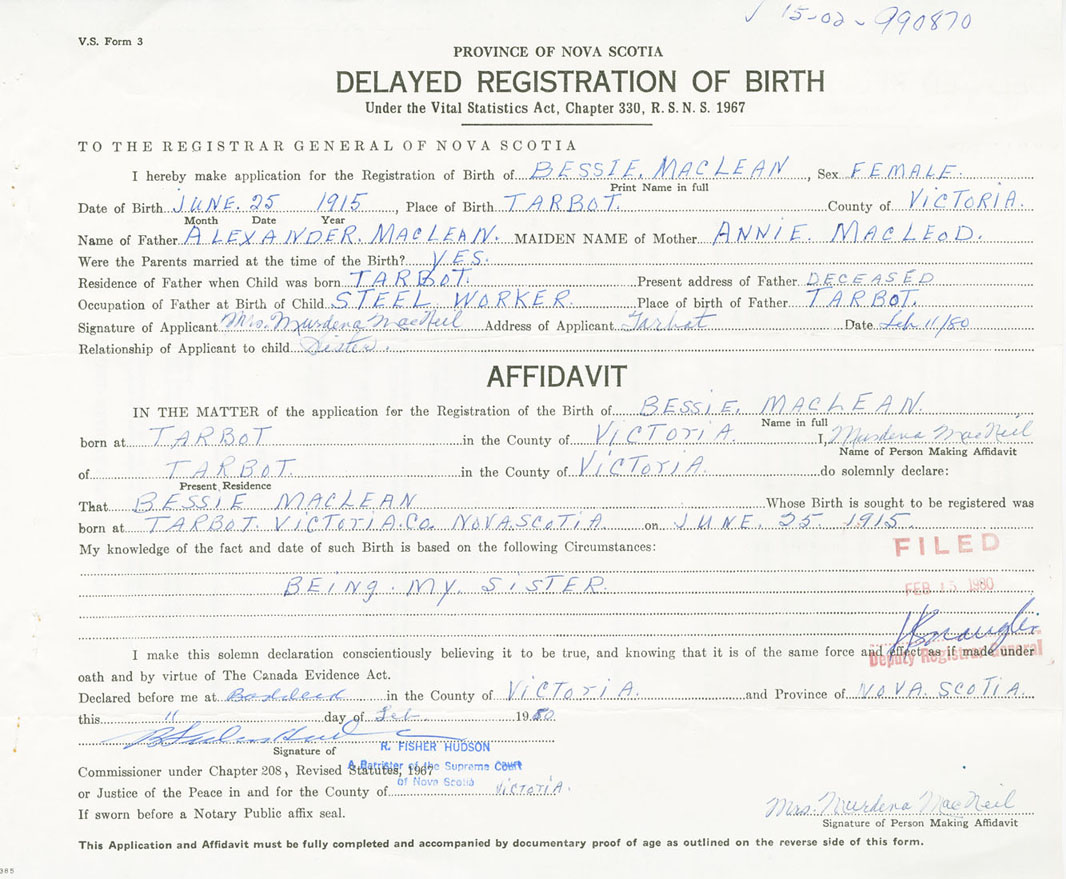 ✓ 15-02-990870
V.S. Form 3
PROVINCE OF NOVA SCOTIA
DELAYED REGISTRATION OF BIRTH
Under the Vital Statistics Act, Chapter 330, R.S.N.S. 1967
TO THE REGISTRAR GENERAL OF NOVA SCOTIA
I hereby make application for the Registration of Birth of BESSIE. MACLEAN, Sex FEMALE.
Print Name in full
Date of Birth JUNE. 25 1915, Place of Birth TARBOT. County of VICTORIA.
Month Date Year
Name of Father ALEXANDER. MACLEAN. MAIDEN NAME of Mother ANNIE. MACLEOD.
Were the Parents married at the time of the Birth? YES.
Residence of Father when Child was born TARBOT. Present address of Father DECEASED
Occupation of Father at Birth of Child STEEL WORKER Place of birth of Father TARBOT.
Signature of Applicant Mrs. Murdena MacNeil Address of Applicant Tarbot Date Feb 11/80
Relationship of Applicant to child Sister.
AFFIDAVIT
IN THE MATTER of the application for the Registration of the Birth of BESSIE. MACLEAN.
Name in full
born at TARBOT in the County of VICTORIA. I, Murdena MacNeil
Name of Person Making Affidavit
of TARBOT. in the County of VICTORIA. do solemnly declare:
Present Residence
That BESSIE MACLEAN Whose Birth is sought to be registered was
born at TARBOT. VICTORIA. CO. NOVA. SCOTIA on JUNE. 25 1915.
My knowledge of the fact and date of such Birth is based on the following Circumstances:
FILED
BEING. MY. SISTER.
FEB 15 1980
I make this solemn declaration conscientiously believing it to be true, and knowing that it is of the same force and effect as if made under
Deputy Registrar General
oath and by virtue of The Canada Evidence Act.
Declared before me at Baddeck in the County of VICTORIA. and Province of NOVA. SCOTIA
this 11 day of Feb. 1980
Signature of R. FISHER HUDSON
A Barrister of the Supreme Court
Commissioner under Chapter 208, Revised Statutes, 1967
of Nova Scotia
or Justice of the Peace in and for the County of VICTORIA.
If sworn before a Notary Public affix seal.
Mrs. Murdena MacNeil
Signature of Person Making Affidavit
This Application and Affidavit must be fully completed and accompanied by documentary proof of age as outlined on the reverse side of this form.